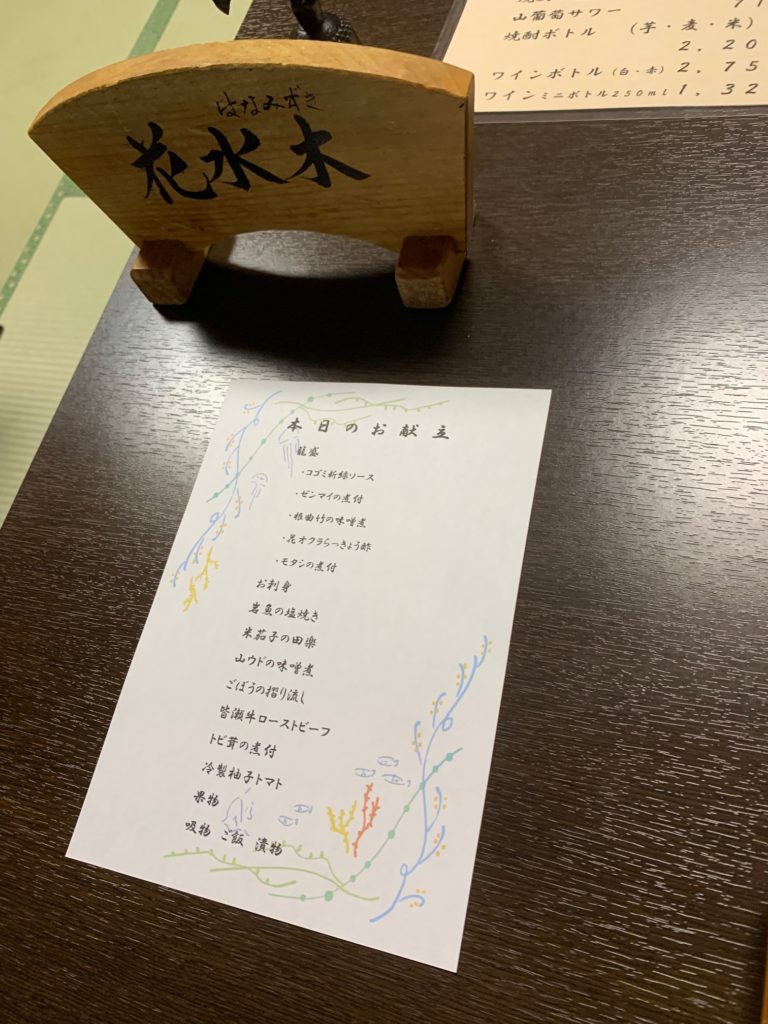 はなみずき
花水木
山葡萄サワー
焼酎ボトル (芋・麦・米)
2,20
ワインボトル(白・赤) 2,75
ワインミニボトル250ml 1,32
本日のお献立
籠盛
・コゴミ新緑ソース
・ゼンマイの煮付
・根曲竹の味噌煮
・花オクラらっきょう酢
・モタシの煮付
お刺身
岩魚の塩焼き
米茄子の田楽
山ウドの味噌煮
ごぼうの摺り流し
皆瀬牛ローストビーフ
トビ茸の煮付
冷製柚子トマト
果物
吸物 ご飯 漬物